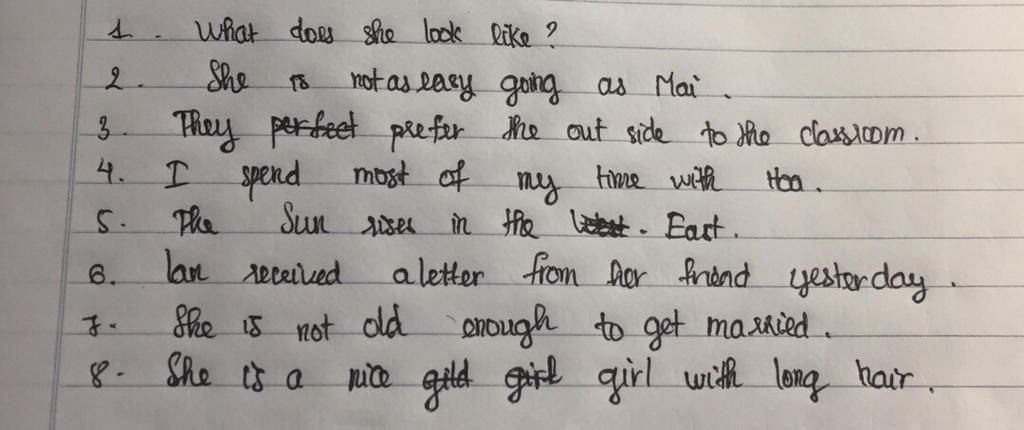 1. What does she look like?
2. She is not as easy going as Mai.
3. They perfect prefer the out side to the classroom.
4. I spend most of my time with Hoa.
5. The Sun rises in the West. East.
6. Lan received a letter from her friend yesterday.
7. She is not old enough to get married.
8. She is a nice gild girl girl with long hair.